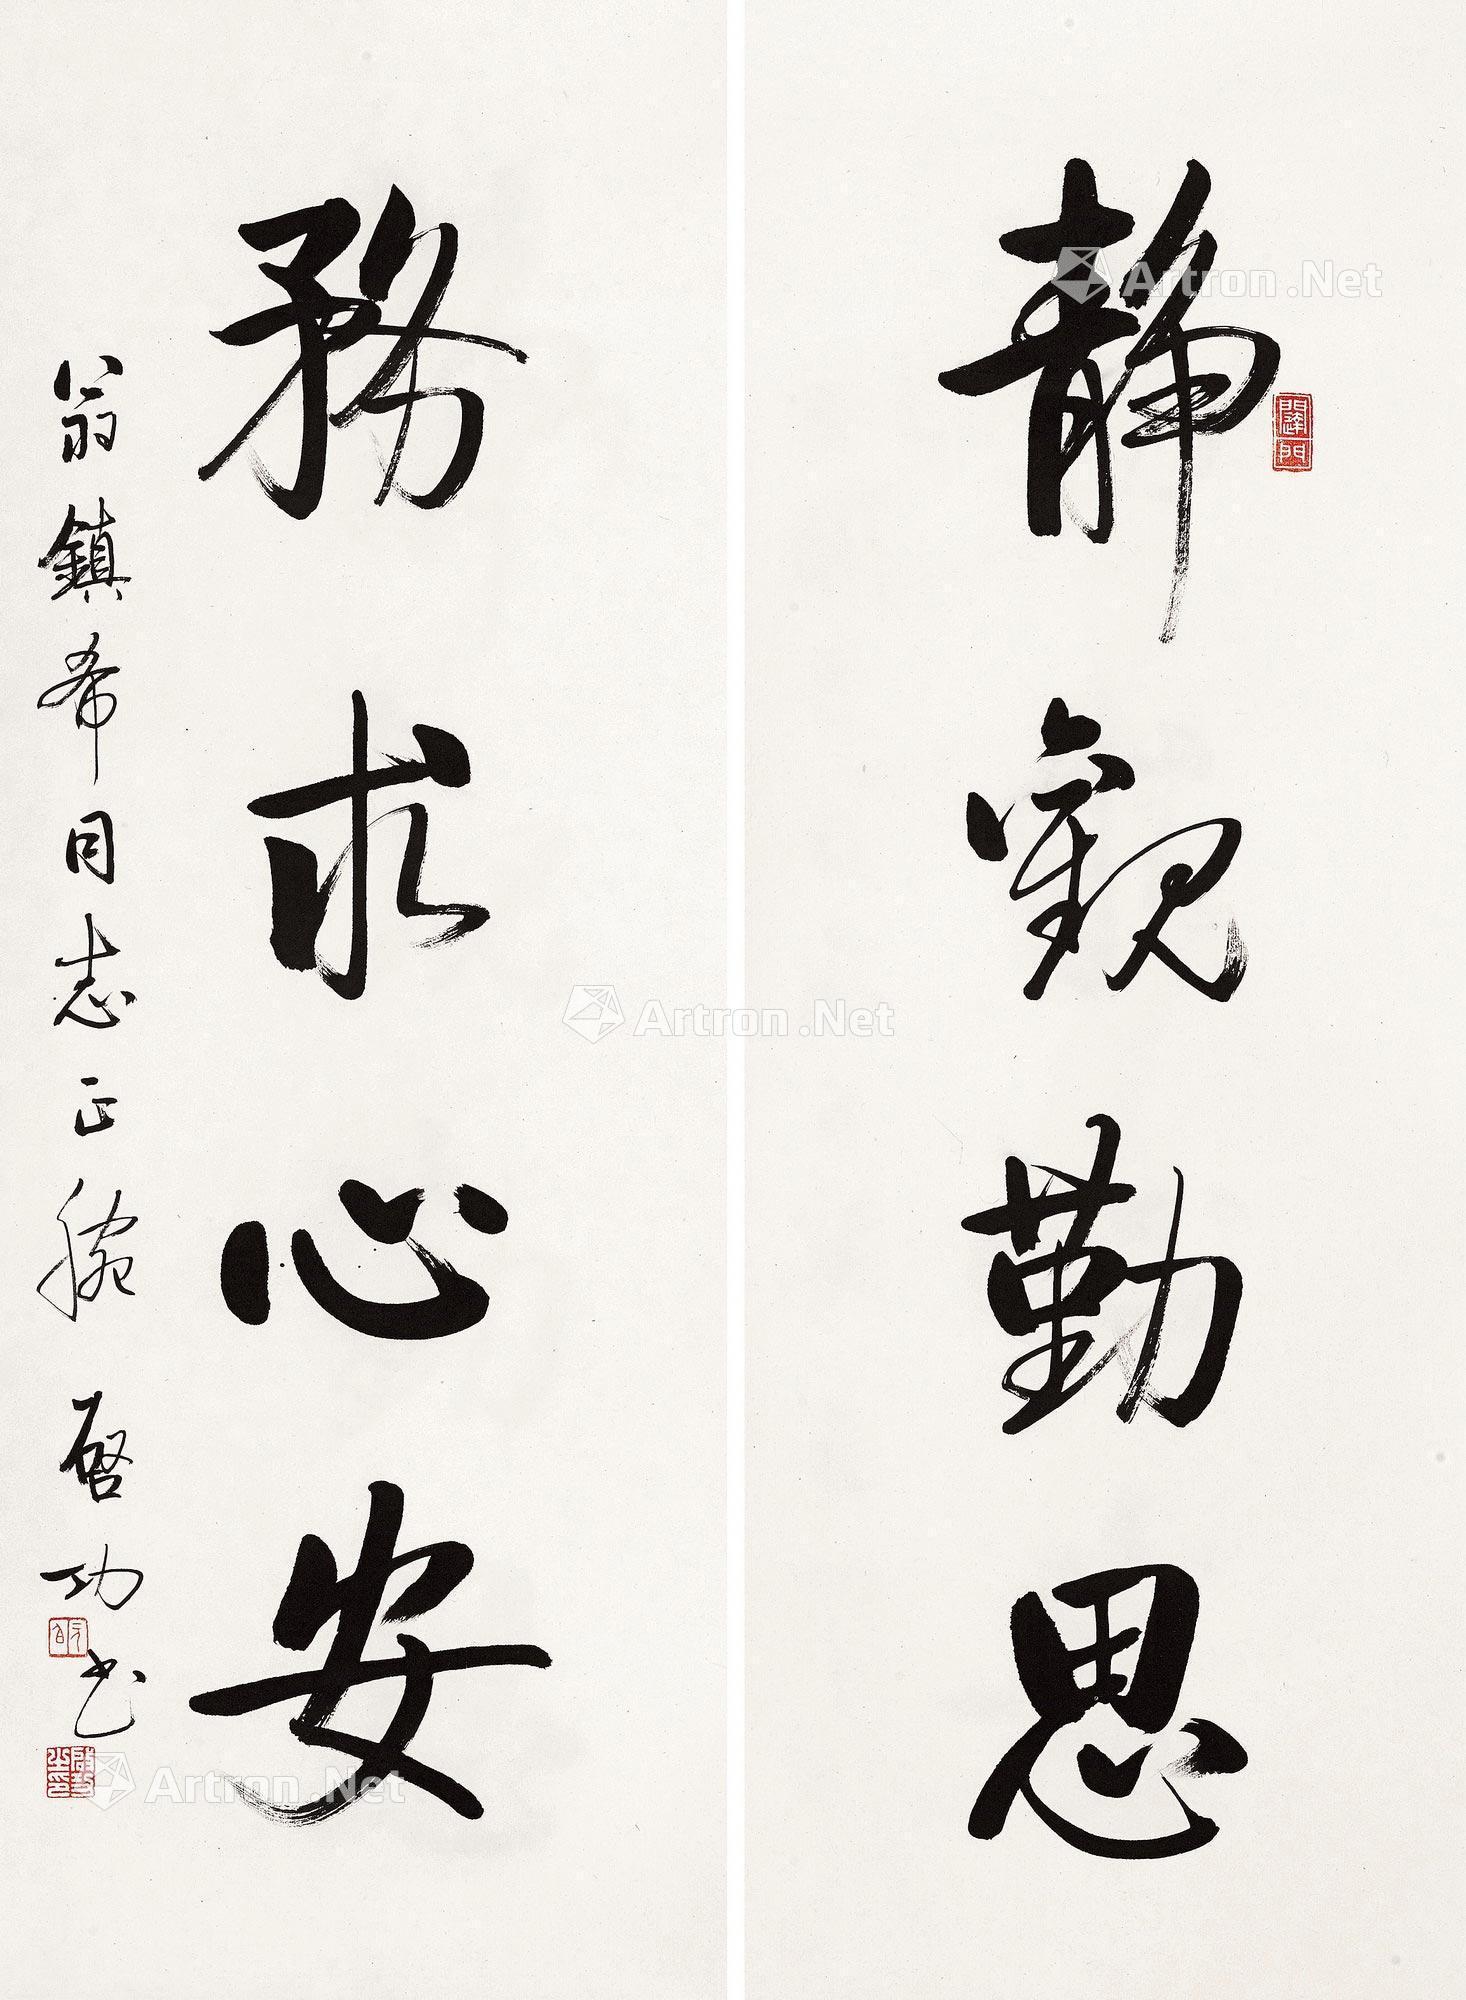 靜觀勤思
務求心安
翁鎮希同志正腕
啓功书
Artron.Net
Artron.Net
Artron.Net